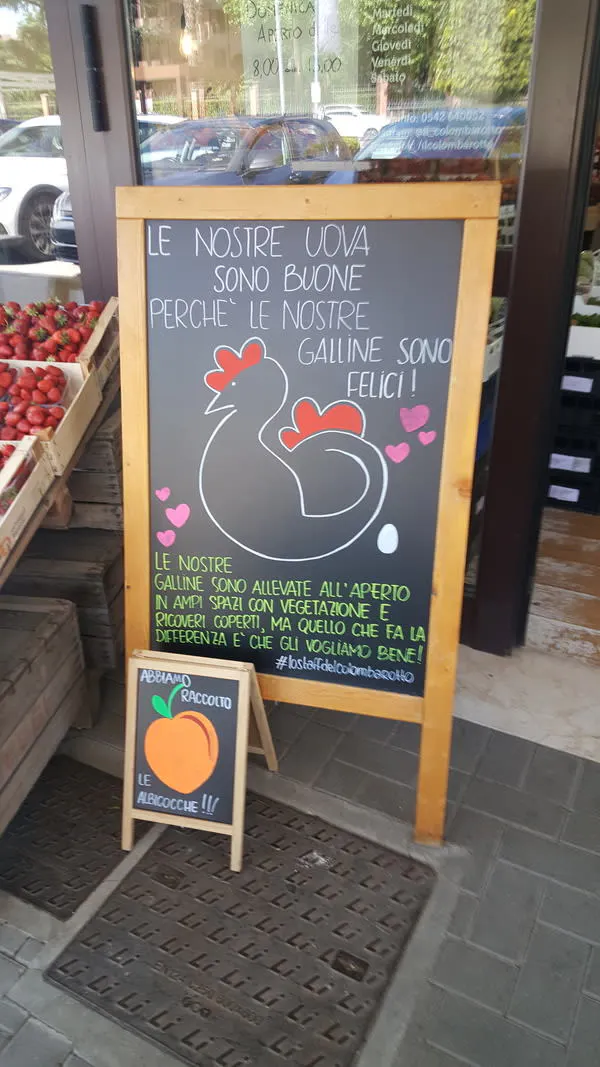 DOMENICA
APERTO dalle
8,00
13,00
Martedì
Mercoledì
Giovedì
Venerdì
Sabato
0542 640052
@il_colombarotto
/ilcolombarotto
LE NOSTRE UOVA
SONO BUONE
PERCHE` LE NOSTRE
GALLINE SONO
FELICI!
LE NOSTRE
GALLINE SONO ALLEVATE ALL'APERTO
IN AMPI SPAZI CON VEGETAZIONE E
RICOVERI COPERTI, MA QUELLO CHE FA LA
DIFFERENZA E` CHE GLI VOGLIAMO BENE!
#lostaffdelcolombarotto
ABBIAMO
RACCOLTO
LE
ALBICOCCHE!!!